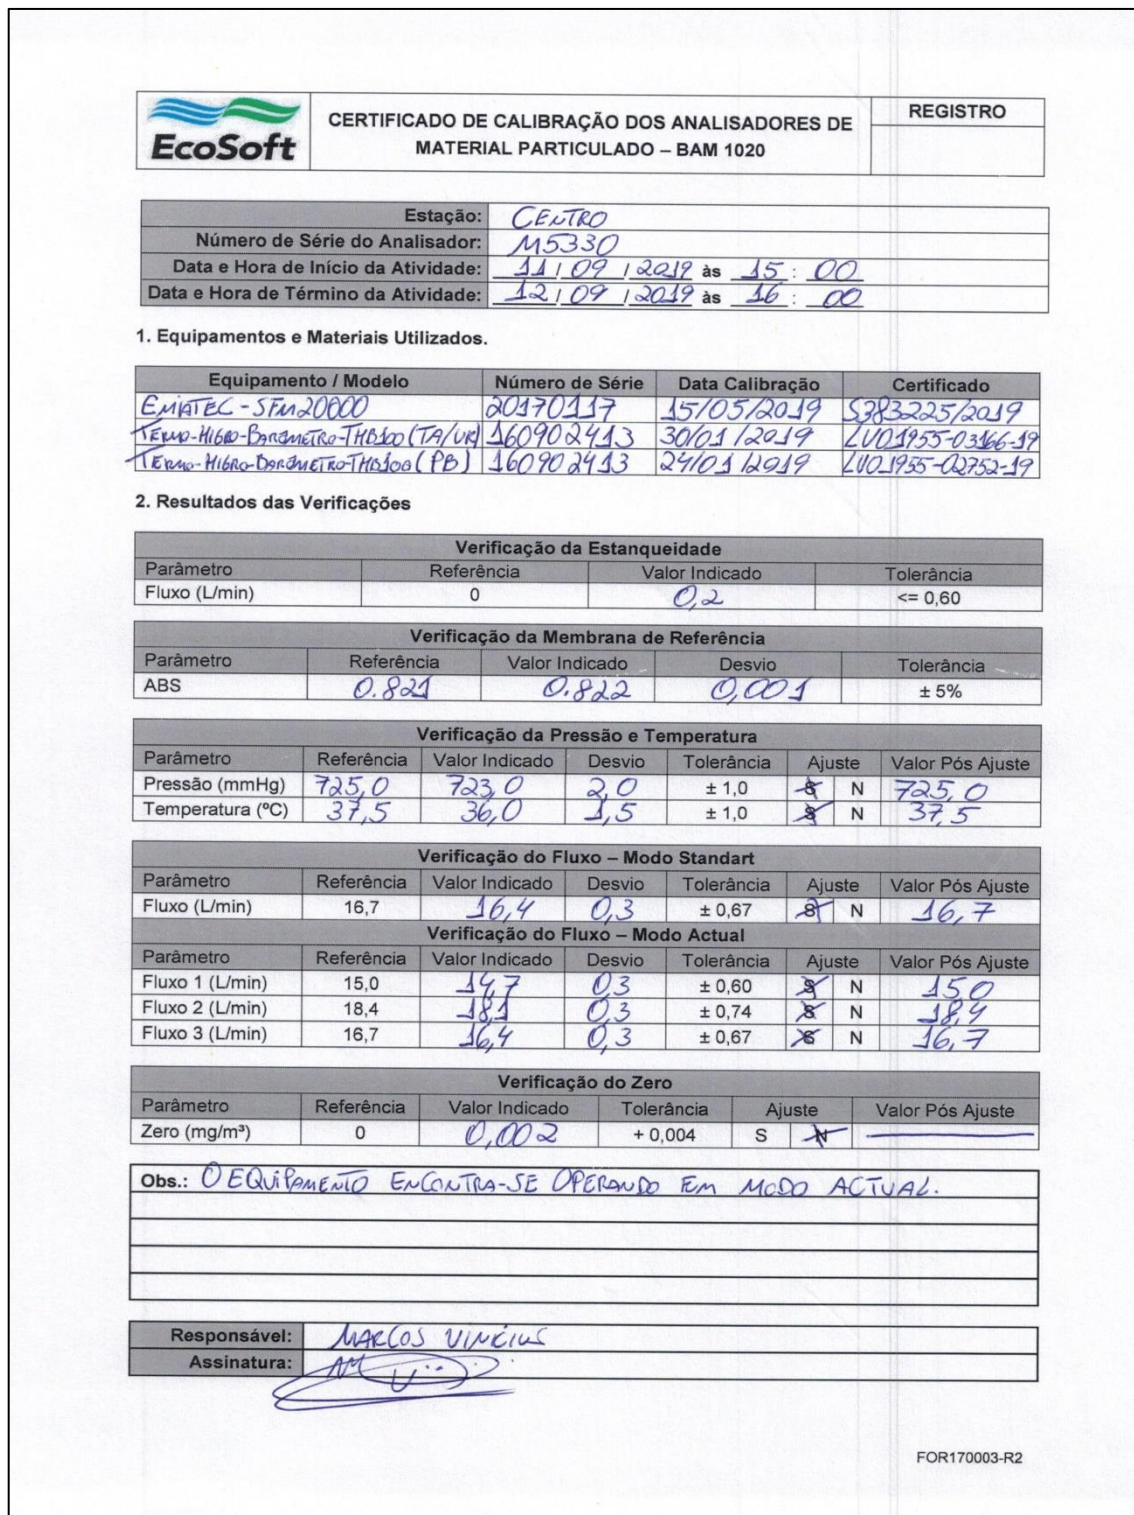 EcoSoft
CERTIFICADO DE CALIBRAÇÃO DOS ANALISADORES DE
MATERIAL PARTICULADO – BAM 1020
REGISTRO
Estação: CENTRO
Número de Série do Analisador: M5330
Data e Hora de Início da Atividade: 11 / 09 / 2019 às 15 : 00
Data e Hora de Término da Atividade: 12 / 09 / 2019 às 16 : 00
1. Equipamentos e Materiais Utilizados.
Equipamento / Modelo Número de Série Data Calibração Certificado
EMATEC - SFM20000 20170117 15/05/2019 S383225/2019
TERMO-HIGRO-BARÔMETRO-THB100 (TA/UR) 160902413 30/01/2019 LV01955-03166-19
TERMO-HIGRO-BARÔMETRO-THB100 (PB) 160902413 24/01/2019 LV01955-02752-19
2. Resultados das Verificações
Verificação da Estanqueidade
Parâmetro Referência Valor Indicado Tolerância
Fluxo (L/min) 0 0,2 <= 0,60
Verificação da Membrana de Referência
Parâmetro Referência Valor Indicado Desvio Tolerância
ABS 0.821 0.822 0,001 ± 5%
Verificação da Pressão e Temperatura
Parâmetro Referência Valor Indicado Desvio Tolerância Ajuste Valor Pós Ajuste
Pressão (mmHg) 725,0 723,0 2,0 ± 1,0 S N 725,0
Temperatura (ºC) 37,5 36,0 1,5 ± 1,0 S N 37,5
Verificação do Fluxo – Modo Standart
Parâmetro Referência Valor Indicado Desvio Tolerância Ajuste Valor Pós Ajuste
Fluxo (L/min) 16,7 16,4 0,3 ± 0,67 S N 16,7
Verificação do Fluxo – Modo Actual
Parâmetro Referência Valor Indicado Desvio Tolerância Ajuste Valor Pós Ajuste
Fluxo 1 (L/min) 15,0 14,7 0,3 ± 0,60 S N 15,0
Fluxo 2 (L/min) 18,4 18,1 0,3 ± 0,74 S N 18,4
Fluxo 3 (L/min) 16,7 16,4 0,3 ± 0,67 S N 16,7
Verificação do Zero
Parâmetro Referência Valor Indicado Tolerância Ajuste Valor Pós Ajuste
Zero (mg/m³) 0 0,002 + 0,004 S N
Obs.: O EQUIPAMENTO ENCONTRA-SE OPERANDO EM MODO ACTUAL.
Responsável: MARCOS VINICIUS
Assinatura:
FOR170003-R2